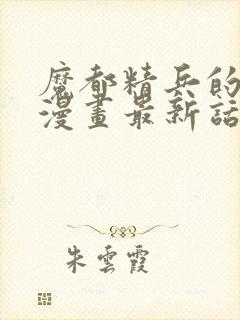 魔都精兵的
漫畫最新話
朱雲霞